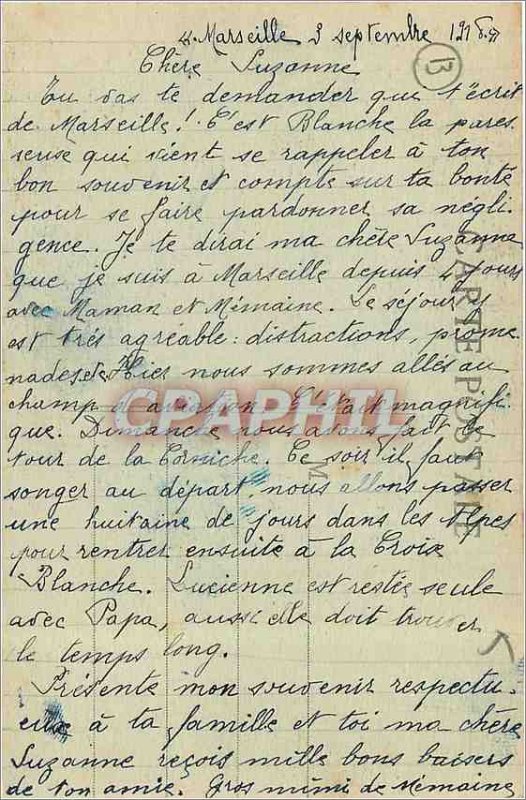 Marseille 3 septembre 1918
13
Chère Suzanne
Tu vas te demander qui t'écrit
de Marseille! C'est Blanche la pares
seuse qui vient se rappeler à ton
bon souvenir et compte sur ta bonté
pour se faire pardonner sa négli
gence. Je te dirai ma chère Suzanne
que je suis à Marseille depuis 4 jours
avec Maman et Mémaine. Le séjour y
est très agréable: distractions, prome
nades, etc Hier nous sommes allés au
champ d'aviation C'était magnifi
que. Dimanche nous avons fait le
tour de la Corniche. Ce soir il faut
songer au départ, nous allons passer
une huitaine de jours dans les Alpes
pour rentrer ensuite à la Croix
Blanche. Lucienne est restée seule
avec Papa, aussi elle doit trouver
le temps long.
Présente mon souvenir respectu
eux à ta famille et toi ma chère
Suzanne reçois mille bons baisers
de ton amie. Gros mimi de Mémaine
CARTE POSTALE
CPAPHIL